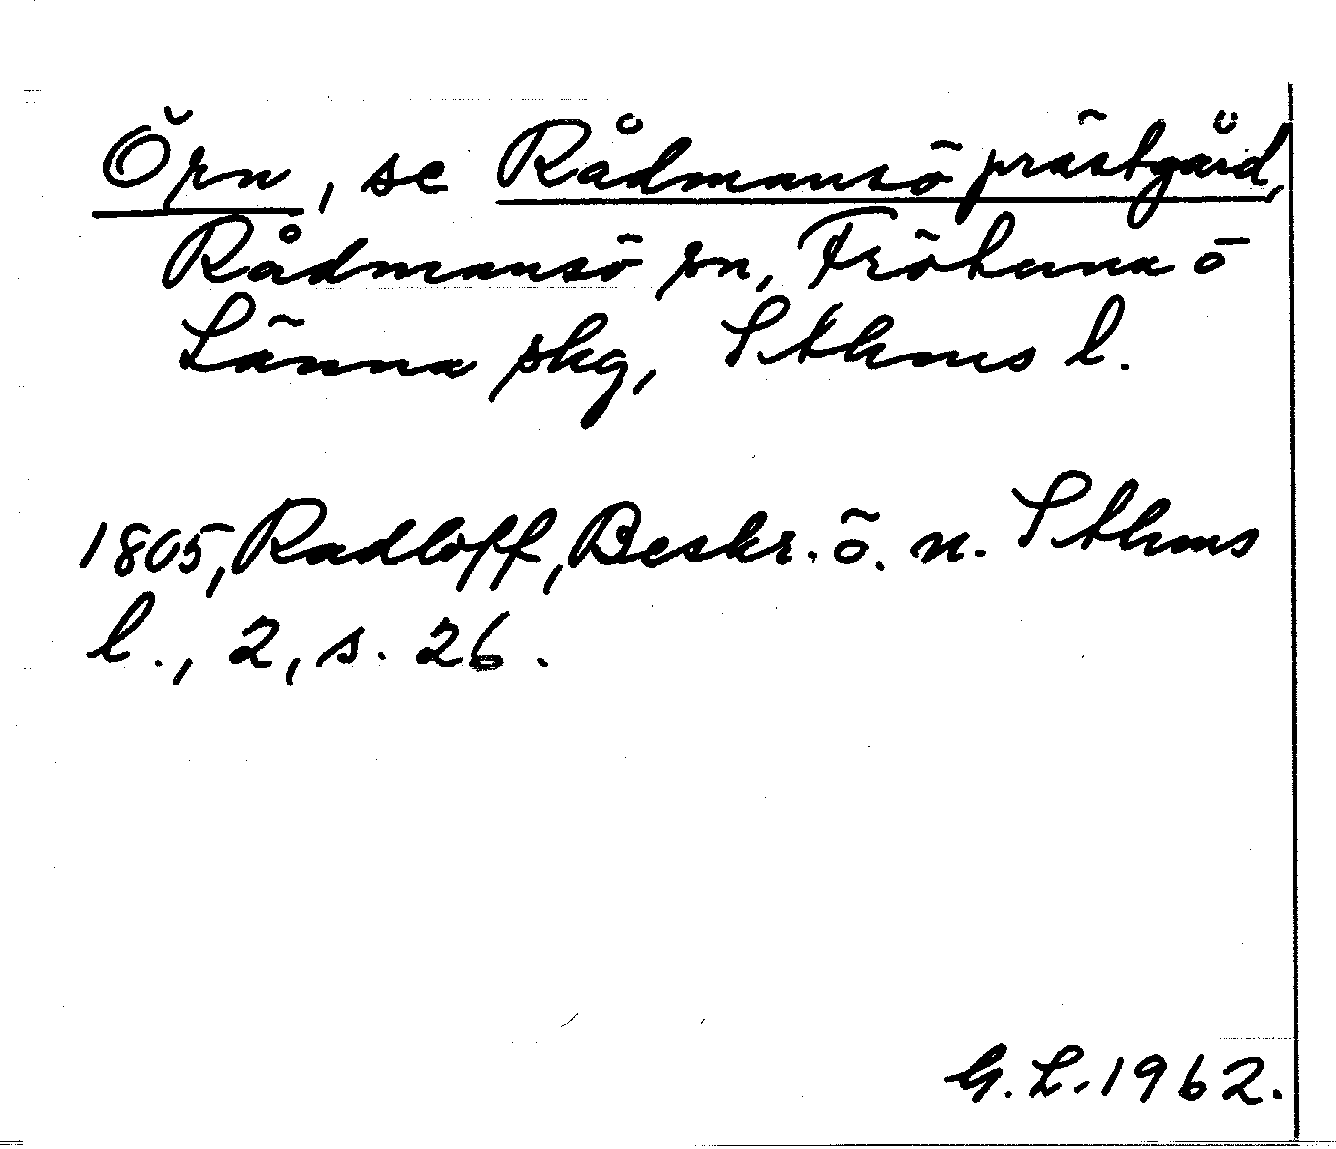 Örn, se Rådmansö prästgård,
Rådmansö sn, Frötuna o
Länna skg, Sthms l.
1805, Radloff, Beskr. ö. n. Sthms
l., 2, s. 26.
G. L. 1962.